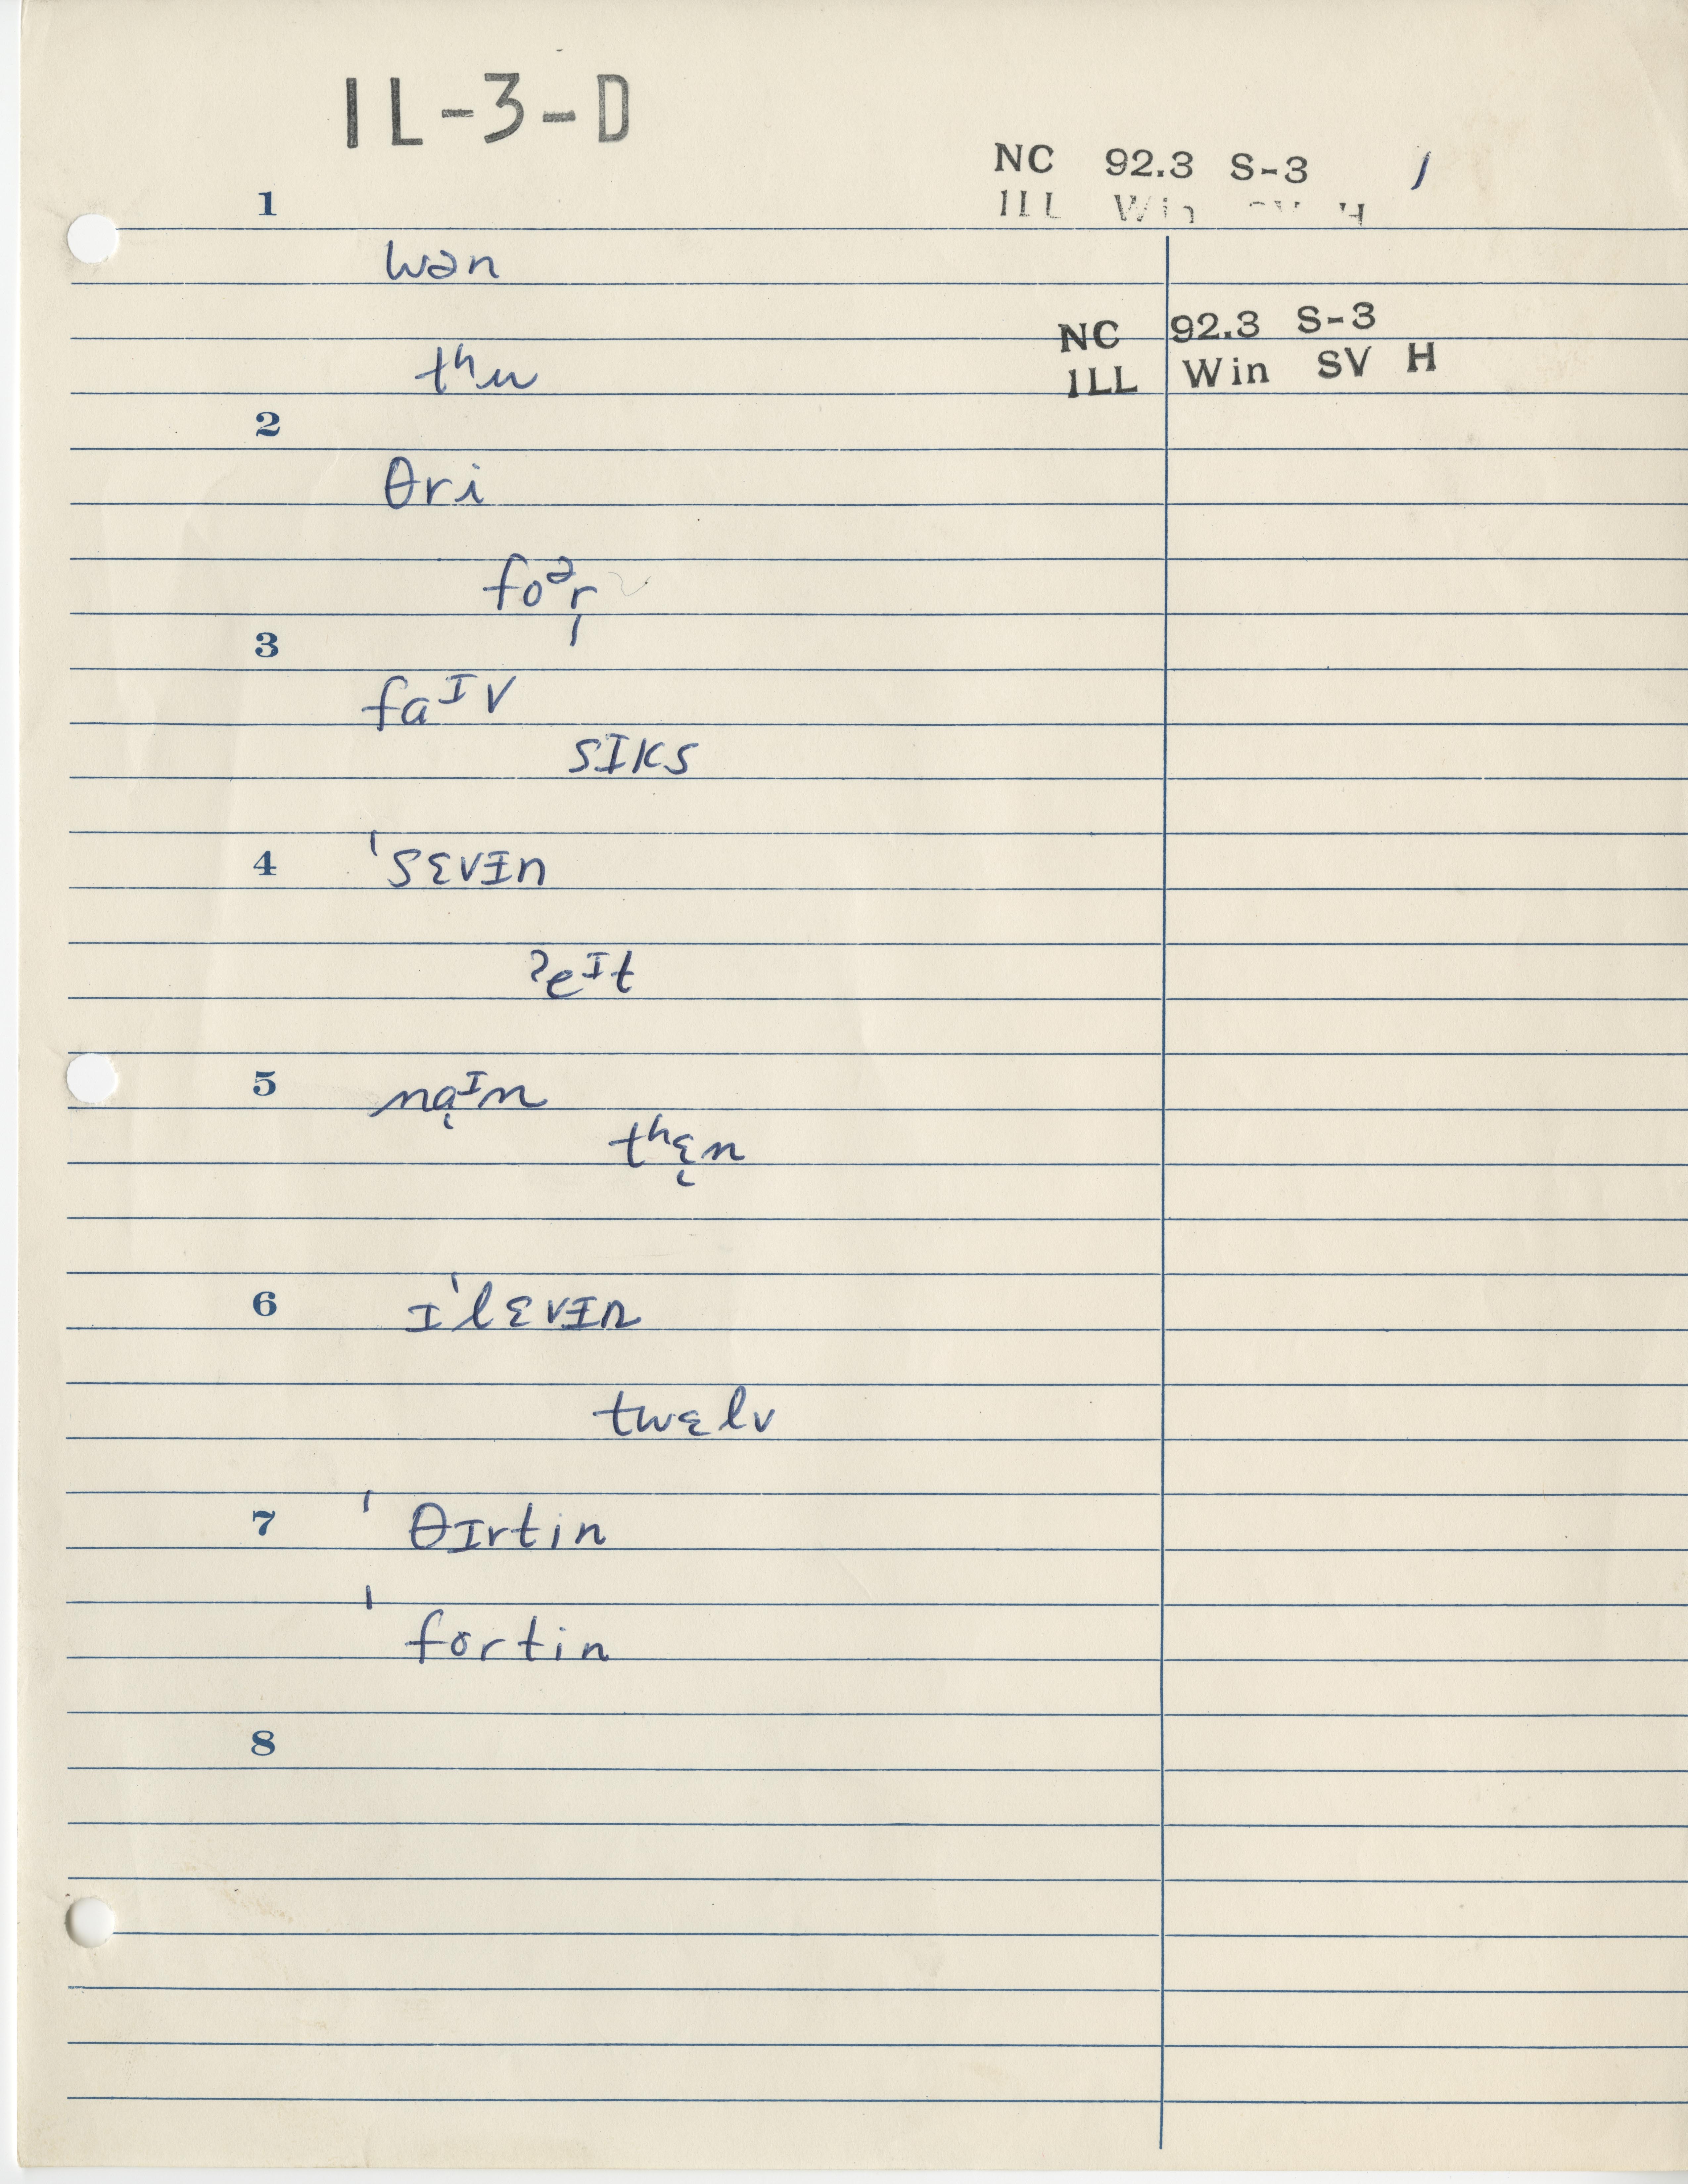 IL-3-D
NC 92.3 S-3 /
ILL Win SV H
1
wən
NC 92.3 S-3
ILL Win SV H
tʰu
2
θri
foᵊr̩
3
faᶦv
sɪks
4 ˈsɛvɪn
ʔeᶦt
5 ną̃ᶦn
tʰɛ̨n
6 ɪˈlɛvɪn
twɛlv
7 ˈθɪrtin
ˈfortin
8